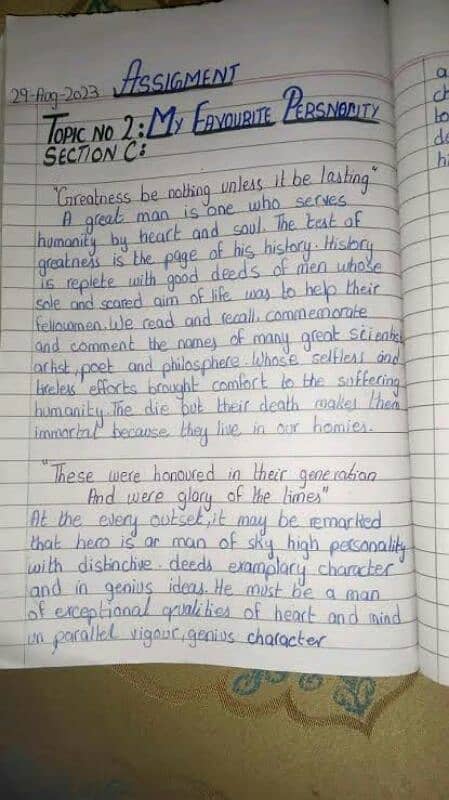 ASSIGMENT
29-Aug-2023
TOPIC NO 2: MY FAVOURITE PERSNOMITY
SECTION C:
"Greatness be nothing unless it be lasting"
A great man is one who serves
humanity by heart and soul. The test of
greatness is the page of his history. History
is replete with good deeds of men whose
sole and scared aim of life was to help their
fellowmen. We read and recall, commemorate
and comment the names of many great scientist
artist, poet and philosphere. Whose selfless and
tireless efforts brought comfort to the suffering
humanity. The die but their death makes them
immortal because they live in our homies.
"These were honoured in their generation
And were glory of the times"
At the every outset, it may be remarked
that hero is ar man of sky high personality
with distinctive deeds examplary character
and in genius ideas. He must be a man
of exceptional qualities of heart and mind
un parallel vigour, genius character
a
ch
to
de
hi